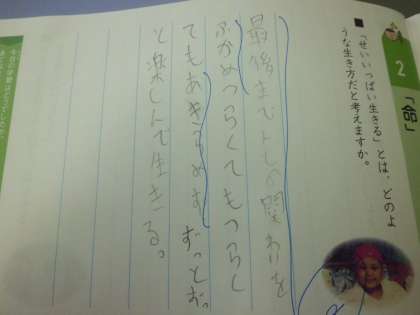 2
「命」
■「せいいっぱい生きる」とは、どのよ
うな生き方だと考えますか。
最後まで人との関わりを
ふかめつらくてもつらく
てもあきらめずずっとず。
と楽しんで生きる。